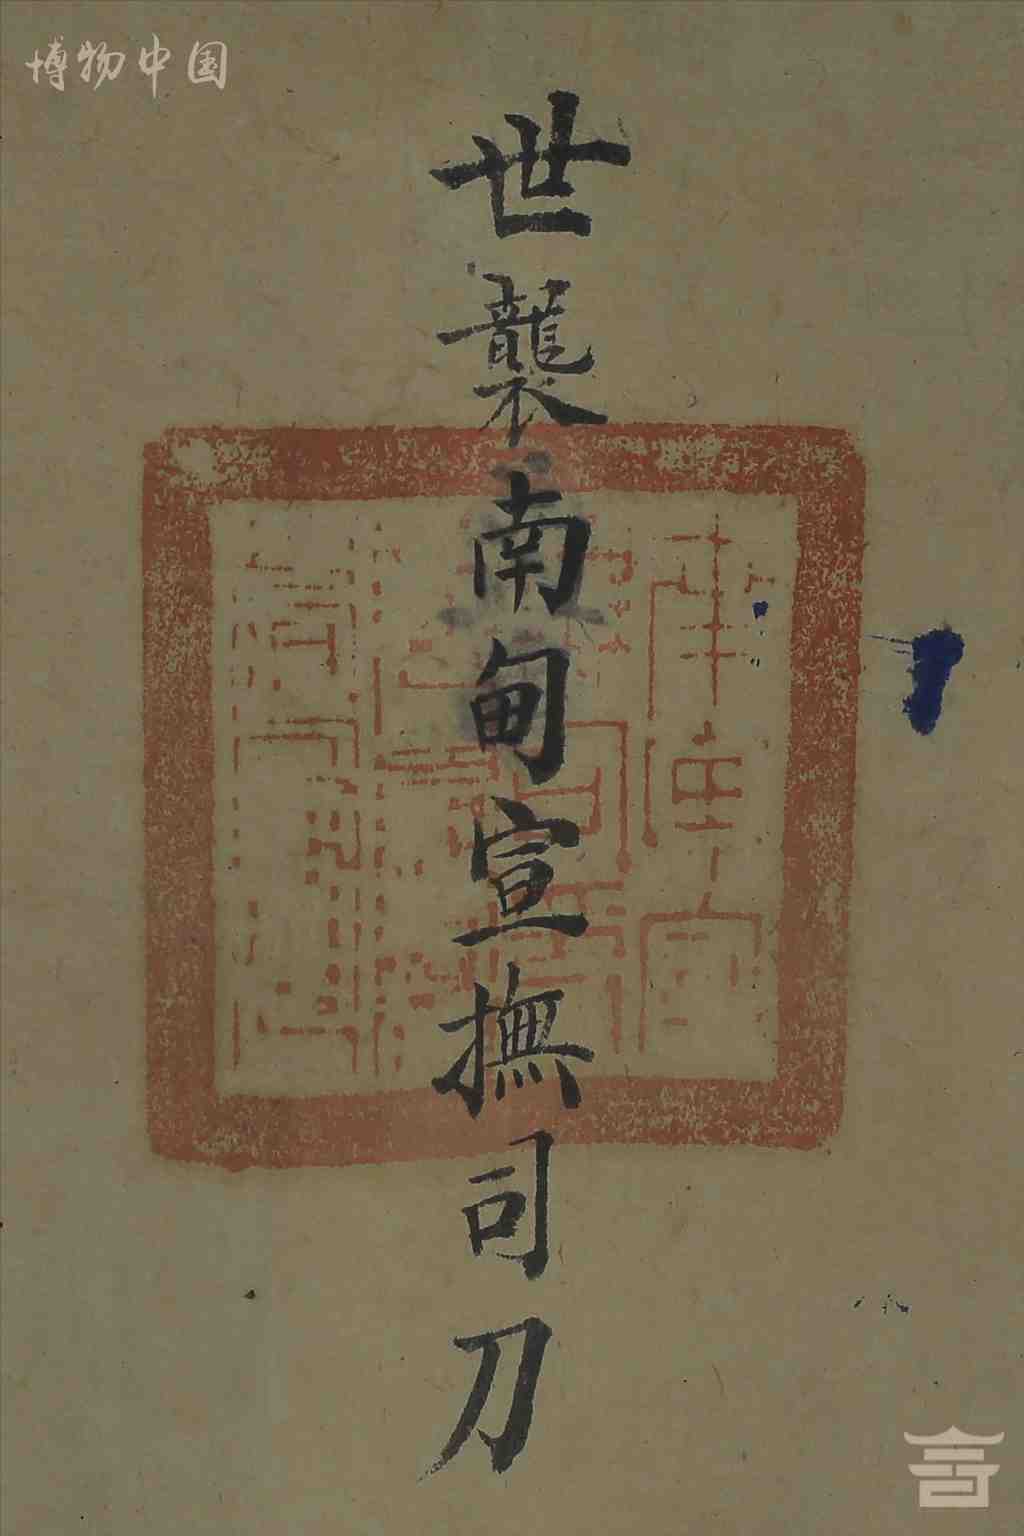 博物中国
世襲南甸宣撫司刀